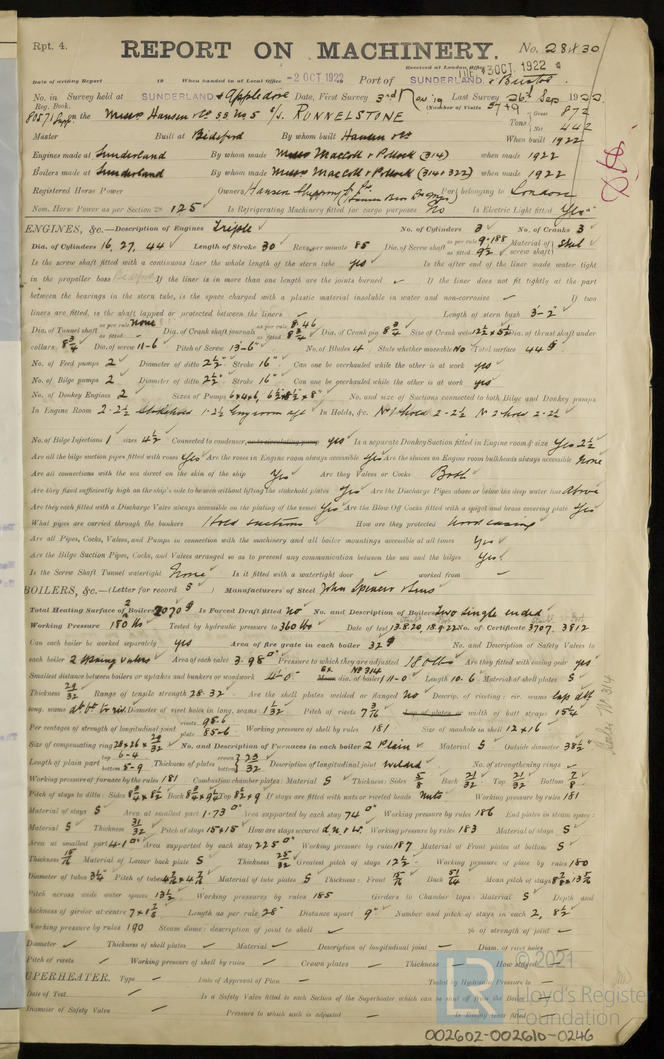 Rpt. 4.
REPORT ON MACHINERY.
No. 28430
Received at London Office
3 OCT. 1922
Date of writing Report 19 When handed in at Local Office -2 OCT 1922 Port of SUNDERLAND. & Bristol.
No. in Survey held at SUNDERLAND. & Appledore Date, First Survey 3rd Nov 19 Last Survey 26th Sep. 1922
Reg. Book. (Number of Visits
80571 on the Messrs Hansen s/s. RUNNELSTONE Tons Gross 872 Net 442
Master Built at Bideford By whom built Hansen When built 1922
Engines made at Sunderland By whom made Messrs MacColl & Pollock (314) when made 1922
Boilers made at Sunderland By whom made Messrs MacColl & Pollock (314+322) when made 1922
Registered Horse Power Owners Hansen Shipping Port belonging to London
Nom. Horse Power as per Section 28 125 Is Refrigerating Machinery fitted for cargo purposes No Is Electric Light fitted Yes
ENGINES, &c.—Description of Engines Triple No. of Cylinders 3 No. of Cranks 3
Dia. of Cylinders 16, 27, 44 Length of Stroke 30 Revs. per minute 85 Dia. of Screw shaft as per rule 9.188 as fitted 9½ Material of screw shaft Steel
Is the screw shaft fitted with a continuous liner the whole length of the stern tube yes Is the after end of the liner made water tight
in the propeller boss If the liner is in more than one length are the joints burned If the liner does not fit tightly at the part
between the bearings in the stern tube, is the space charged with a plastic material insoluble in water and non-corrosive If two
liners are fitted, is the shaft lapped or protected between the liners Length of stern bush 3'-2"
Dia. of Tunnel shaft as per rule none as fitted Dia. of Crank shaft journals as per rule 8.46 as fitted 8¾ Dia. of Crank pin 8¾ Size of Crank webs 12½ x 5½ Dia. of thrust shaft under
collars 8¾ Dia. of screw 11-6 Pitch of Screw 13-6 No. of Blades 4 State whether moveable No Total surface 44
No. of Feed pumps 2 Diameter of ditto 2½" Stroke 16" Can one be overhauled while the other is at work yes
No. of Bilge pumps 2 Diameter of ditto 2½" Stroke 16" Can one be overhauled while the other is at work yes
No. of Donkey Engines 2 Sizes of Pumps No. and size of Suctions connected to both Bilge and Donkey pumps
In Engine Room 2-2½ Stokehold 1-2½ Eng room aft In Holds, &c. No 1 hold 2-2½ No 2 hold 2-2½
No. of Bilge Injections 1 sizes 4½ Connected to condenser, or to circulating pump yes Is a separate Donkey Suction fitted in Engine room & size Yes 2½
Are all the bilge suction pipes fitted with roses Yes Are the roses in Engine room always accessible Yes Are the sluices on Engine room bulkheads always accessible None
Are all connections with the sea direct on the skin of the ship Yes Are they Valves or Cocks Both
Are they fixed sufficiently high on the ship's side to be seen without lifting the stokehold plates Yes Are the Discharge Pipes above or below the deep water line Above
Are they each fitted with a Discharge Valve always accessible on the plating of the vessel Yes Are the Blow Off Cocks fitted with a spigot and brass covering plate Yes
What pipes are carried through the bunkers Hold suctions How are they protected Wood casing
Are all Pipes, Cocks, Valves, and Pumps in connection with the machinery and all boiler mountings accessible at all times Yes
Are the Bilge Suction Pipes, Cocks, and Valves arranged so as to prevent any communication between the sea and the bilges Yes
Is the Screw Shaft Tunnel watertight None Is it fitted with a watertight door worked from
BOILERS, &c.—(Letter for record S) Manufacturers of Steel John Spencer & Sons
Total Heating Surface of 2 Boilers 2070 Is Forced Draft fitted No No. and Description of Boilers Two single ended
Working Pressure 180 lbs Tested by hydraulic pressure to 360 lbs Date of test 12.8.20, 18.9.22 No. of Certificate 3707, 3812
Can each boiler be worked separately yes Area of fire grate in each boiler 32 No. and Description of Safety Valves to
each boiler 2 Spring valves Area of each valve 3.98 Pressure to which they are adjusted 180 lbs Are they fitted with easing gear yes
Smallest distance between boilers or uptakes and bunkers or woodwork dia. of boiler 11-0 Length 10-6 Material of shell plates S
Thickness 29/32 Range of tensile strength 28-32 Are the shell plates welded or flanged No Descrip. of riveting: cir. seams lap
long. seams Diameter of rivet holes in long. seams 1 1/32 Pitch of rivets 7 3/16 Lap of plates or width of butt straps 15¼
Per centages of strength of longitudinal joint rivets 98.6 plate 85.6 Working pressure of shell by rules 181 Size of manhole in shell 12x16
Size of compensating ring No. and Description of Furnaces in each boiler 2 Plain Material S Outside diameter 38½"
Length of plain part top 6-4 bottom 5-9 Thickness of plates crown bottom 23/32 Description of longitudinal joint welded No. of strengthening rings
Working pressure of furnace by the rules 181 Combustion chamber plates: Material S Thickness: Sides 5/8 Back 21/32 Top 21/32 Bottom 7/8
Pitch of stays to ditto: Sides Back Top 8½x9 If stays are fitted with nuts or riveted heads nuts Working pressure by rules 181
Material of stays S Area at smallest part 1.73 Area supported by each stay 74 Working pressure by rules 186 End plates in steam space:
Material S Thickness 31/32 Pitch of stays 15x15 How are stays secured d.n.&w. Working pressure by rules 183 Material of stays S
Area at smallest part 4.10 Area supported by each stay 225 Working pressure by rules 187 Material of Front plates at bottom S
Thickness 15/16 Material of Lower back plate S Thickness 25/32 Greatest pitch of stays 12½ Working pressure of plate by rules 180
Diameter of tubes 3¼ Pitch of tubes Material of tube plates S Thickness: Front 15/16 Back Mean pitch of stays
Pitch across wide water spaces 13½ Working pressures by rules 185 Girders to Chamber tops: Material S Depth and
thickness of girder at centre Length as per rule 28 Distance apart 9" Number and pitch of stays in each 2, 8½
Working pressure by rules 190 Steam dome: description of joint to shell % of strength of joint
Diameter Thickness of shell plates Material Description of longitudinal joint Diam. of rivet holes
Pitch of rivets Working pressure of shell by rules Crown plates Thickness How stayed
UPERHEATER. Type Date of Approval of Plan Tested by Hydraulic Pressure to
Date of Test Is a Safety Valve fitted to each Section of the Superheater which can be shut off from the Boiler
Diameter of Safety Valve Pressure to which each is adjusted Is Easing Gear fitted
© 2021
Lloyd's Register
Foundation
002602-002610-0246